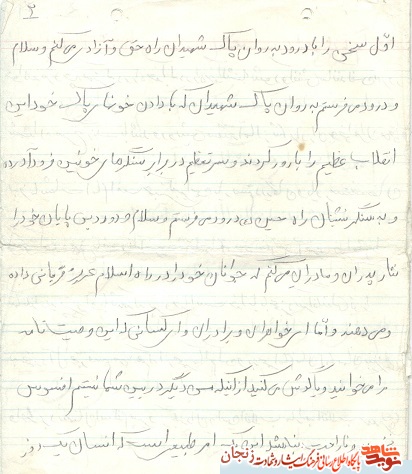 ۲
اول سخنی را با درود به روان پاک شهیدان راه حق و آزادی می‌کنم و سلام
و درود می‌فرستم به روان پاک شهیدان که با دادن خونهای پاک خود این
انقلاب عظیم را بارور کردند و سر تعظیم در برابر سنگرهای خونین فرود آورده
و به سنگر نشینان راه حسین درود می‌فرستم و سلام و درود بی پایان خود را
نثار پدران و مادران می‌کنم که جوانان خود را در راه اسلام عزیز قربانی داده
و می‌دهند و اما ای خواهران و برادران و ای کسانی که این وصیت نامه
را می‌خوانید و یا گوش می‌کنید از اینکه من دیگر در بین شما نیستم افسوس
و ناراحت نباشید این یک امر طبیعی است که انسان یک روز
نوید شاهد
پایگاه اطلاع رسانی فرهنگ ایثار و شهادت زنجان